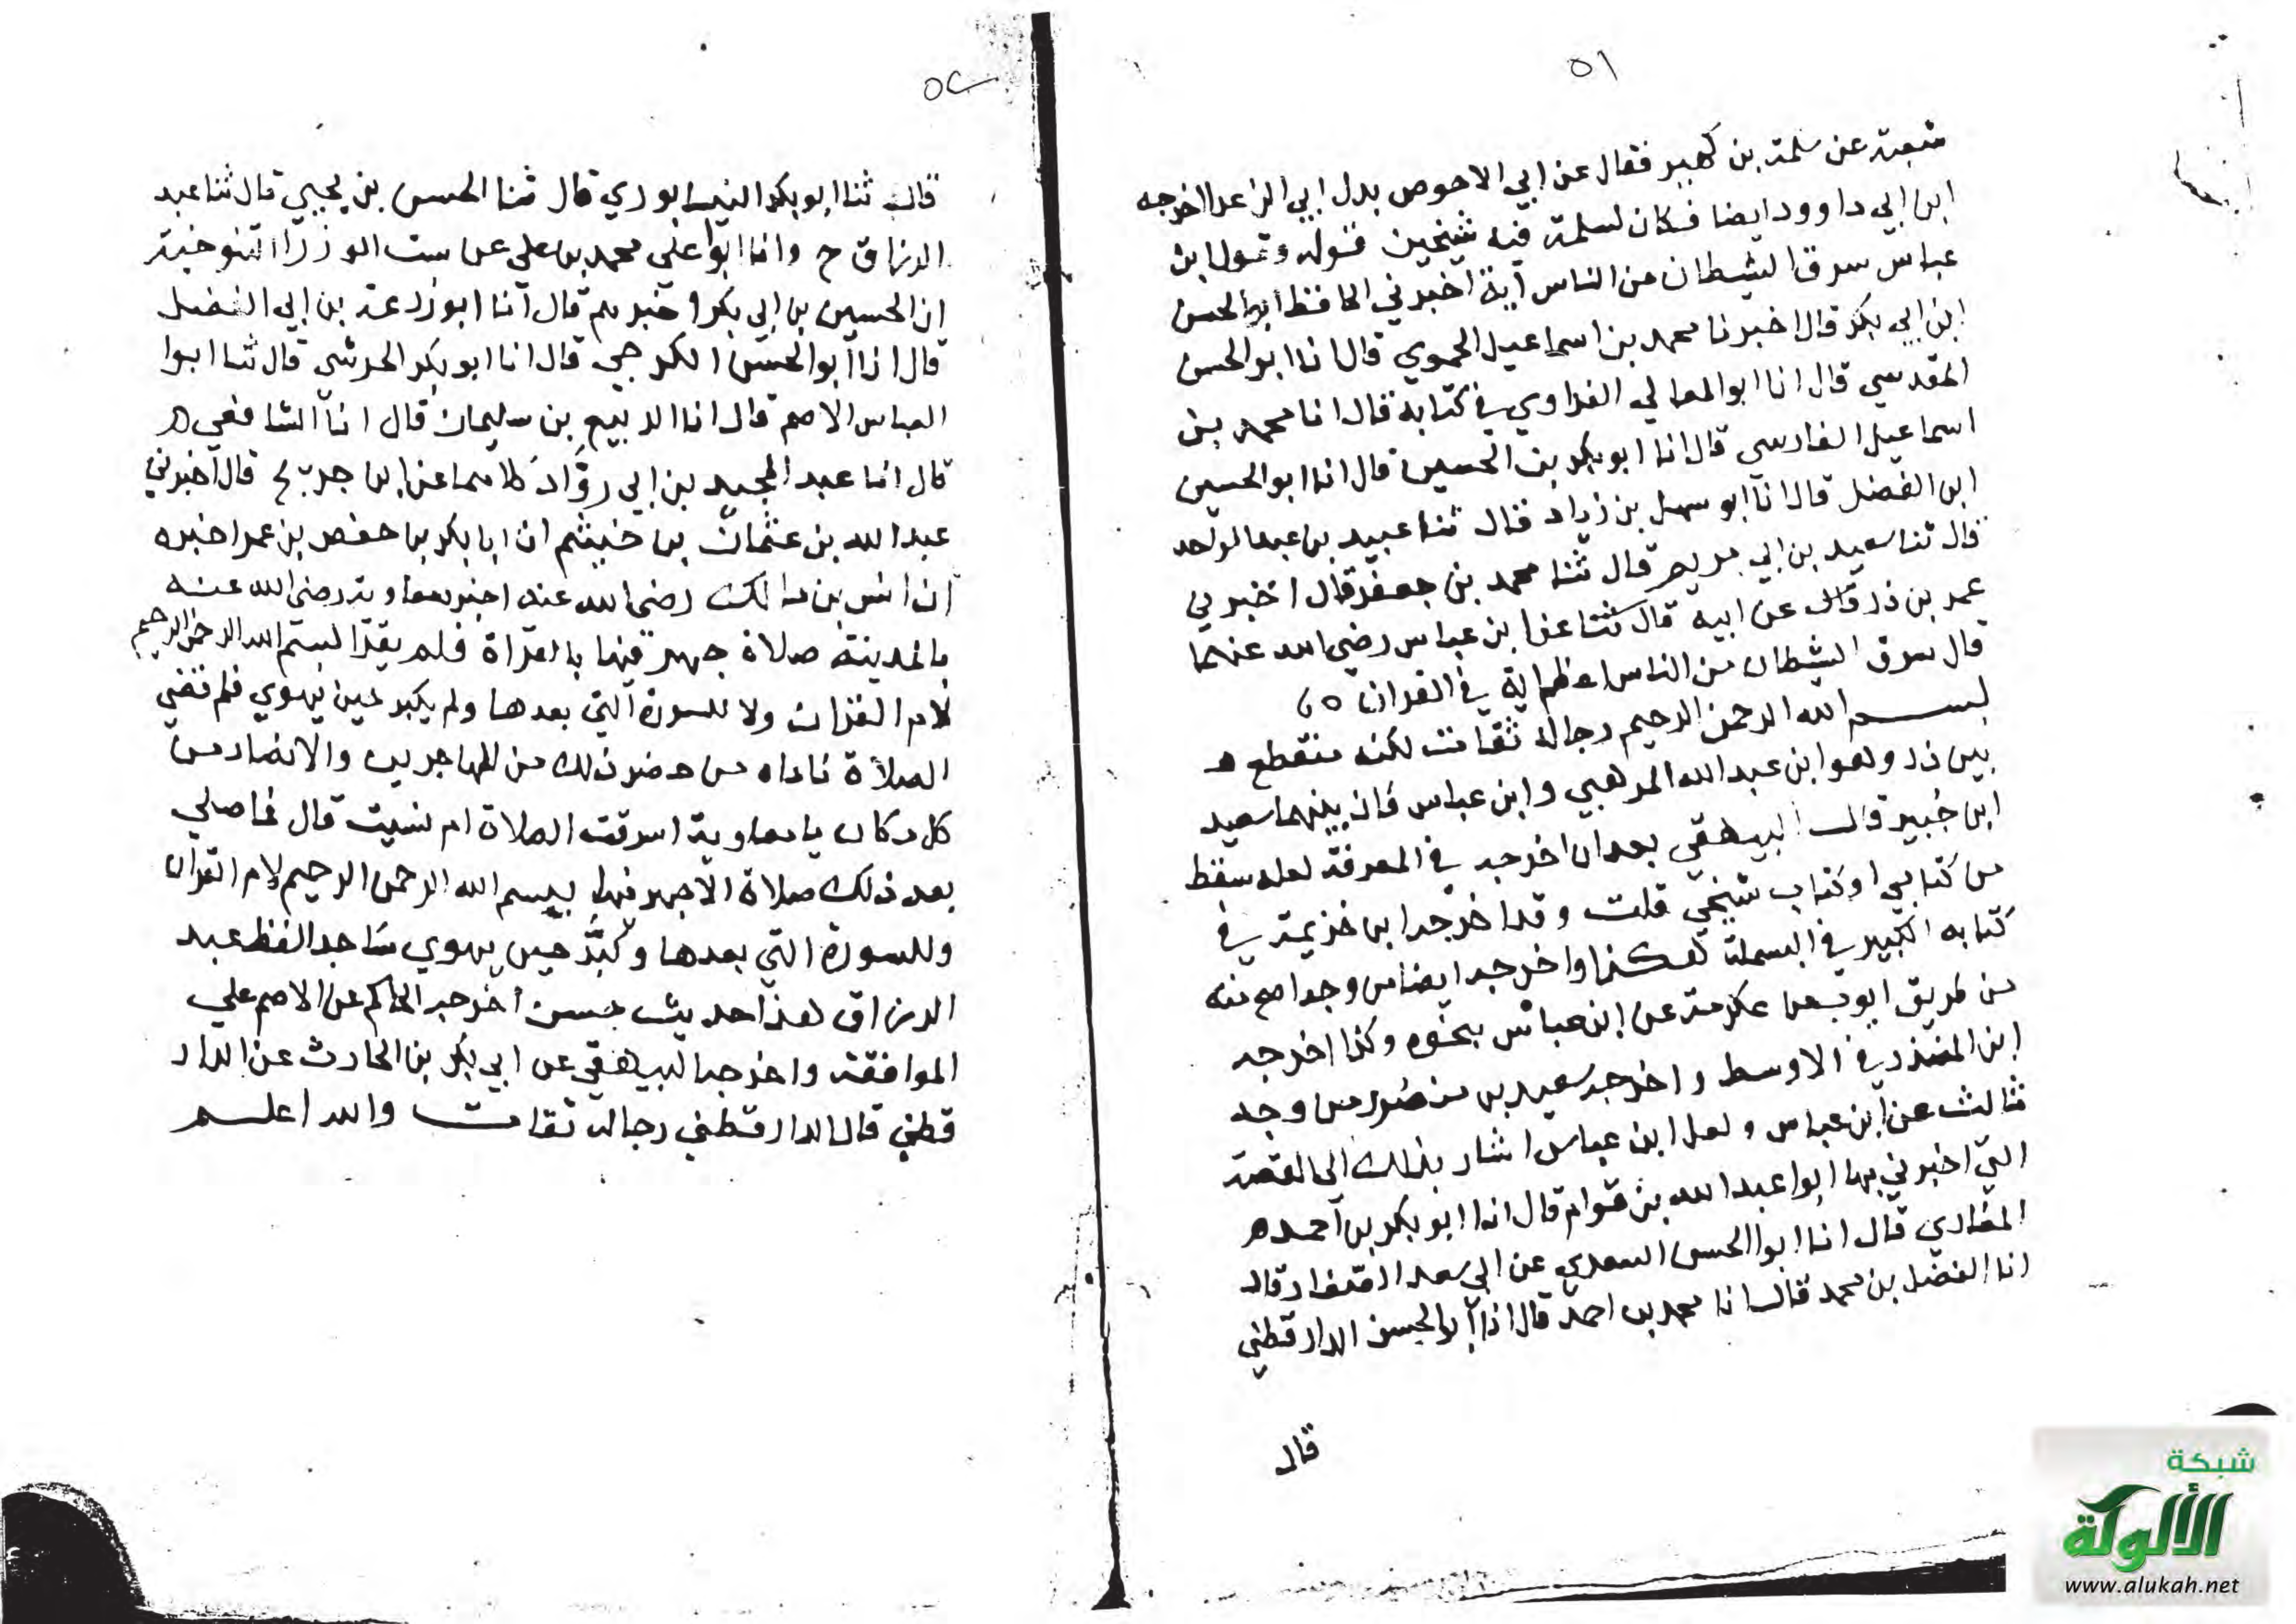 ٥١
شعبة عن سلمة بن كهيل فقال عن ابي الاحوص بدل ابي الزعرا اخرجه
ابن ابي داوود ايضا فكان لسلمة فيه شيخين قوله وتمولا ابن
عباس سرق الشيطان من الناس آية اخبرني الحافظ ابو الحسن
ابن ابي بكر قال اخبرنا محمد بن اسماعيل الحموي قال انا ابو الحسن
المقدسي قال انا ابو المعالي الفراوي في كتابة قال انا محمد بن
اسماعيل الفارسي قال انا ابو بكر بن الحسين قال انا ابو الحسين
ابن الفضل قال انا ابو سهل بن زياد قال ثنا عبيد بن عبد الواحد
قال ثنا سعيد بن ابي مريم قال ثنا محمد بن جعفر قال اخبرني
عمر بن ذر قال عن ابيه قال ثنا عن ابن عباس رضي الله عنهما
قال سرق الشيطان من الناس اعظم اية في القران
بسم الله الرحمن الرحيم رجاله ثقات لكنه منقطع ه
بين ذر وهو ابن عبد الله المرهبي وابن عباس فان بينهما سعيد
ابن جُبير قال البيهقي بعد ان اخرجه في المعرفة لعله سقط
من كتابي او كتاب شيخي قلت وقد اخرجه ابن خزيمة في
كتابه الكبير في البسملة هكذا واخرجه ايضا من وجه اصح منه
من طريق ايوب عن عكرمة عن ابن عباس بنحوه وكذا اخرجه
ابن المنذر في الاوسط واخرجه سعيد بن منصور من وجه
ثالث عن ابن عباس ولعل ابن عباس اشار بذلك الى القصة
التي اخبرني بها ابوا عبد الله بن قوام قال انا ابو بكر بن احمد ه
المغاري قال انا ابوا الحسن السعدي عن ابي سعد الصفار قال
انا الفضل بن محمد قال انا محمد بن احمد قال انا ابو الحسن الدارقطني
قال
٥٢
قال ثنا ابو بكر النيسابوري قال ثنا الحسن بن يحيي قال ثنا عبد
الرزاق ح وانا ابوا علي محمد بن علي عن ست الوزرا التنوخية
ان الحسين بن ابي بكر اخبرهم قال انا ابو زرعة بن ابي الفضل
قال انا ابو الحسن الكرجي قال انا ابو بكر الحرشي قال ثنا ابوا
العباس الاصم قال انا الربيع بن سليمان قال انا الشافعي ه
قال انا عبد المجيد بن ابي روَّاد كلاهما عن ابن جريج قال اخبرني
عبد الله بن عثمان بن خيثم ان ابا بكر بن حفص بن عمر اخبره
ان انس بن مالك رضي الله عنه اخبر معاوية رضي الله عنه
بالمدينة صلاة جهر فيها بالقراة فلم يقرا لبسم الله الرحمن الرحيم
لام القران ولا للسورة التي بعدها ولم يكبر حين يهوي فلم تقضي
الصلاة ناداه من حضر ذلك من المهاجرين والانصار من
كل مكان يا معاوية اسرقت الصلاة ام نسيت قال فما صلي
بعد ذلك صلاة الاجهر فيها ببسم الله الرحمن الرحيم لام القران
وللسورة التي بعدها وكَبَّر حين يهوي ساجد الفظ عبد
الرزاق هذا حديث حسن اخرجه الحاكم عن الاصم علي
الموافقة واخرجه البيهقي عن ابي بكر بن الحارث عن الدار
قطني قال الدارقطني رجاله ثقات والله اعلم
شبكة
الألوكة
www.alukah.net